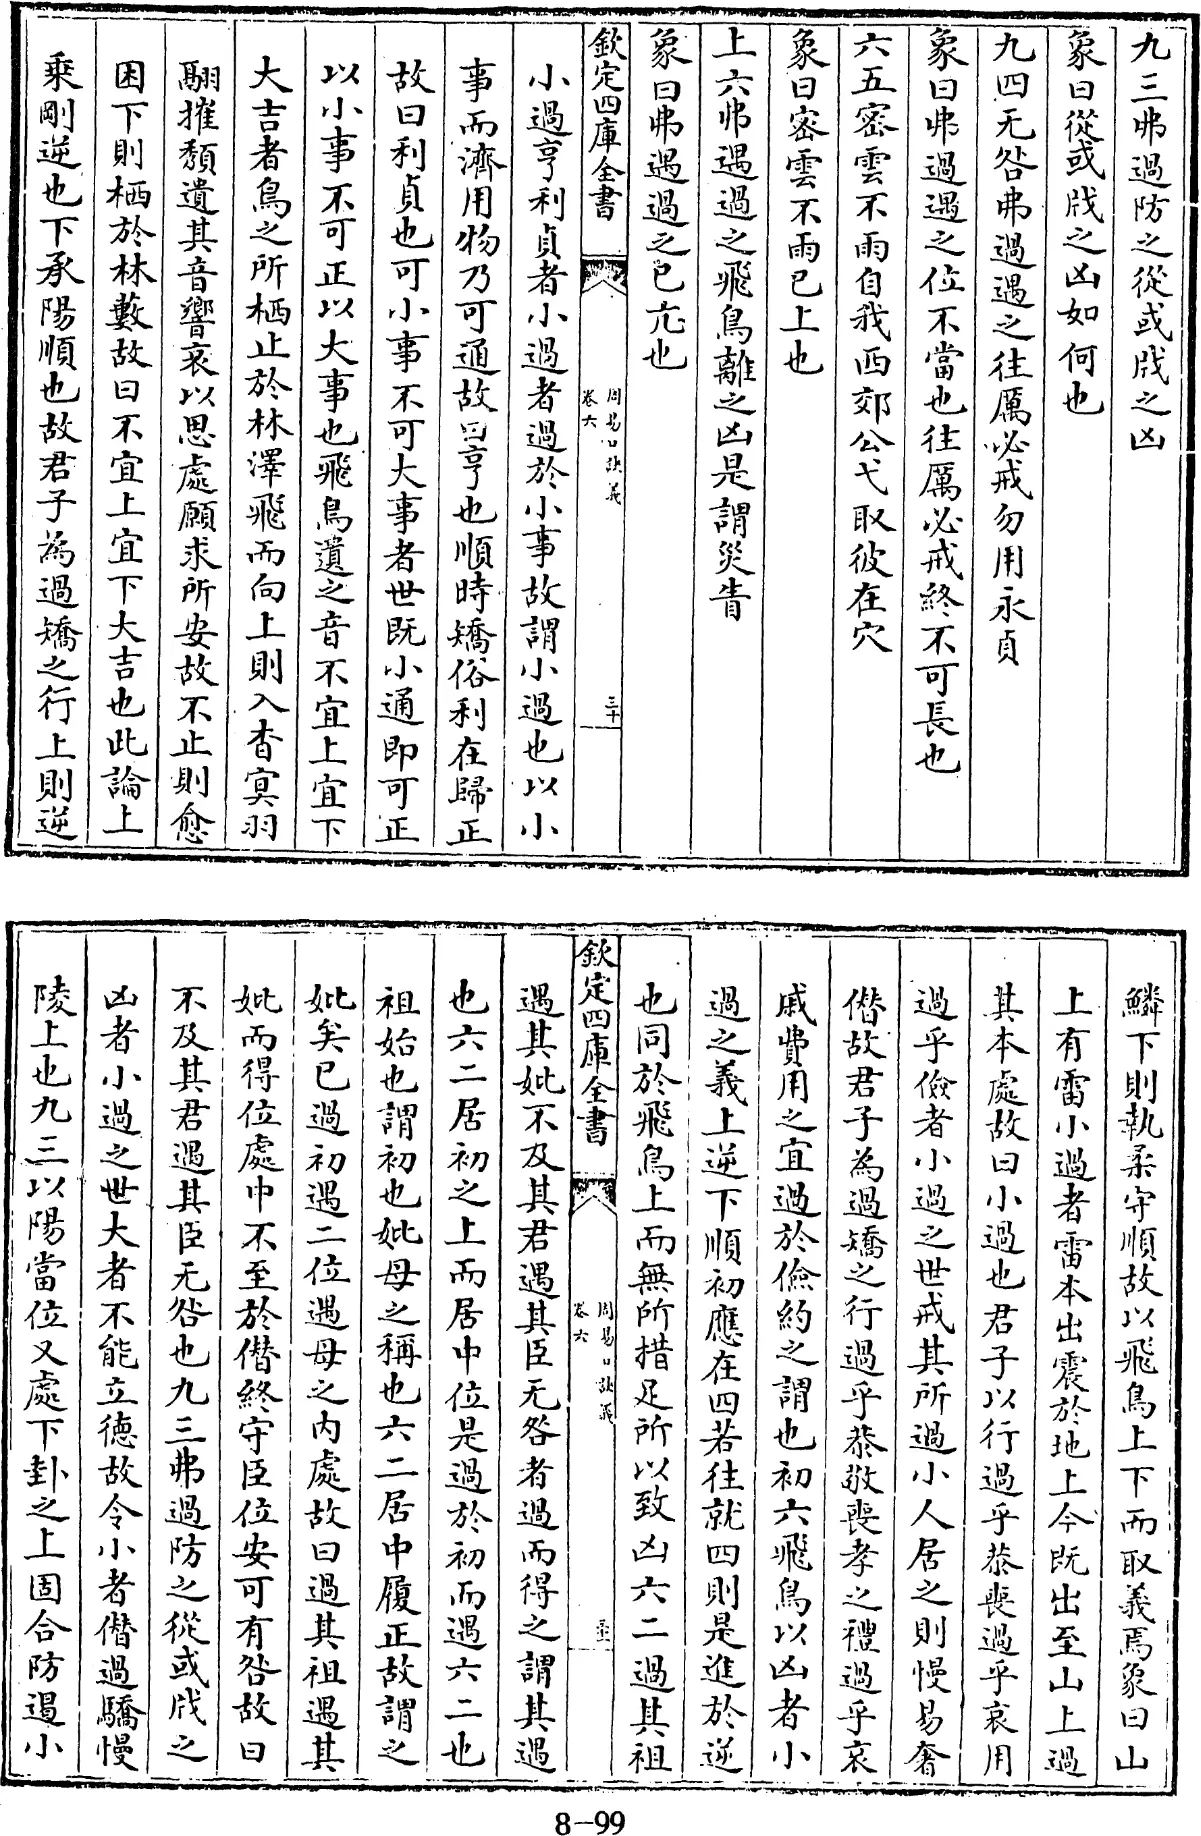 九三弗過防之從或戕之凶
象曰從或戕之凶如何也
九四无咎弗過遇之往厲必戒勿用永貞
象曰弗過遇之位不當也往厲必戒終不可長也
六五密雲不雨自我西郊公弋取彼在穴
象曰密雲不雨已上也
上六弗遇過之飛鳥離之凶是謂災眚
象曰弗遇過之已亢也
欽定四庫全書
周易口訣義
卷六
三十
小過亨利貞者小過者過於小事故謂小過也以小
事而濟用物乃可通故曰亨也順時矯俗利在歸正
故曰利貞也可小事不可大事者世既小通即可正
以小事不可正以大事也飛鳥遺之音不宜上宜下
大吉者鳥之所栖止於林澤飛而向上則入杳冥羽
翮摧頽遺其音響哀以思處願求所安故不止則愈
困下則栖於林藪故曰不宜上宜下大吉也此論上
乘剛逆也下承陽順也故君子為過矯之行上則逆
鱗下則執柔守順故以飛鳥上下而取義焉象曰山
上有雷小過者雷本出震於地上今既出至山上過
其本處故曰小過也君子以行過乎恭喪過乎哀用
過乎儉者小過之世戒其所過小人居之則慢易奢
僭故君子為過矯之行過乎恭敬喪孝之禮過乎哀
戚費用之宜過於儉約之謂也初六飛鳥以凶者小
過之義上逆下順初應在四若往就四則是進於逆
也同於飛鳥上而無所措足所以致凶六二過其祖
欽定四庫全書
周易口訣義
卷六
三十一
遇其妣不及其君遇其臣无咎者過而得之謂其遇
也六二居初之上而居中位是過於初而遇六二也
祖始也謂初也妣母之稱也六二居中履正故謂之
妣矣已過初遇二位遇母之内處故曰過其祖遇其
妣而得位處中不至於僭終守臣位安可有咎故曰
不及其君遇其臣无咎也九三弗過防之從或戕之
凶者小過之世大者不能立德故令小者僭過驕慢
陵上也九三以陽當位又處下卦之上固合防遏小
8-99